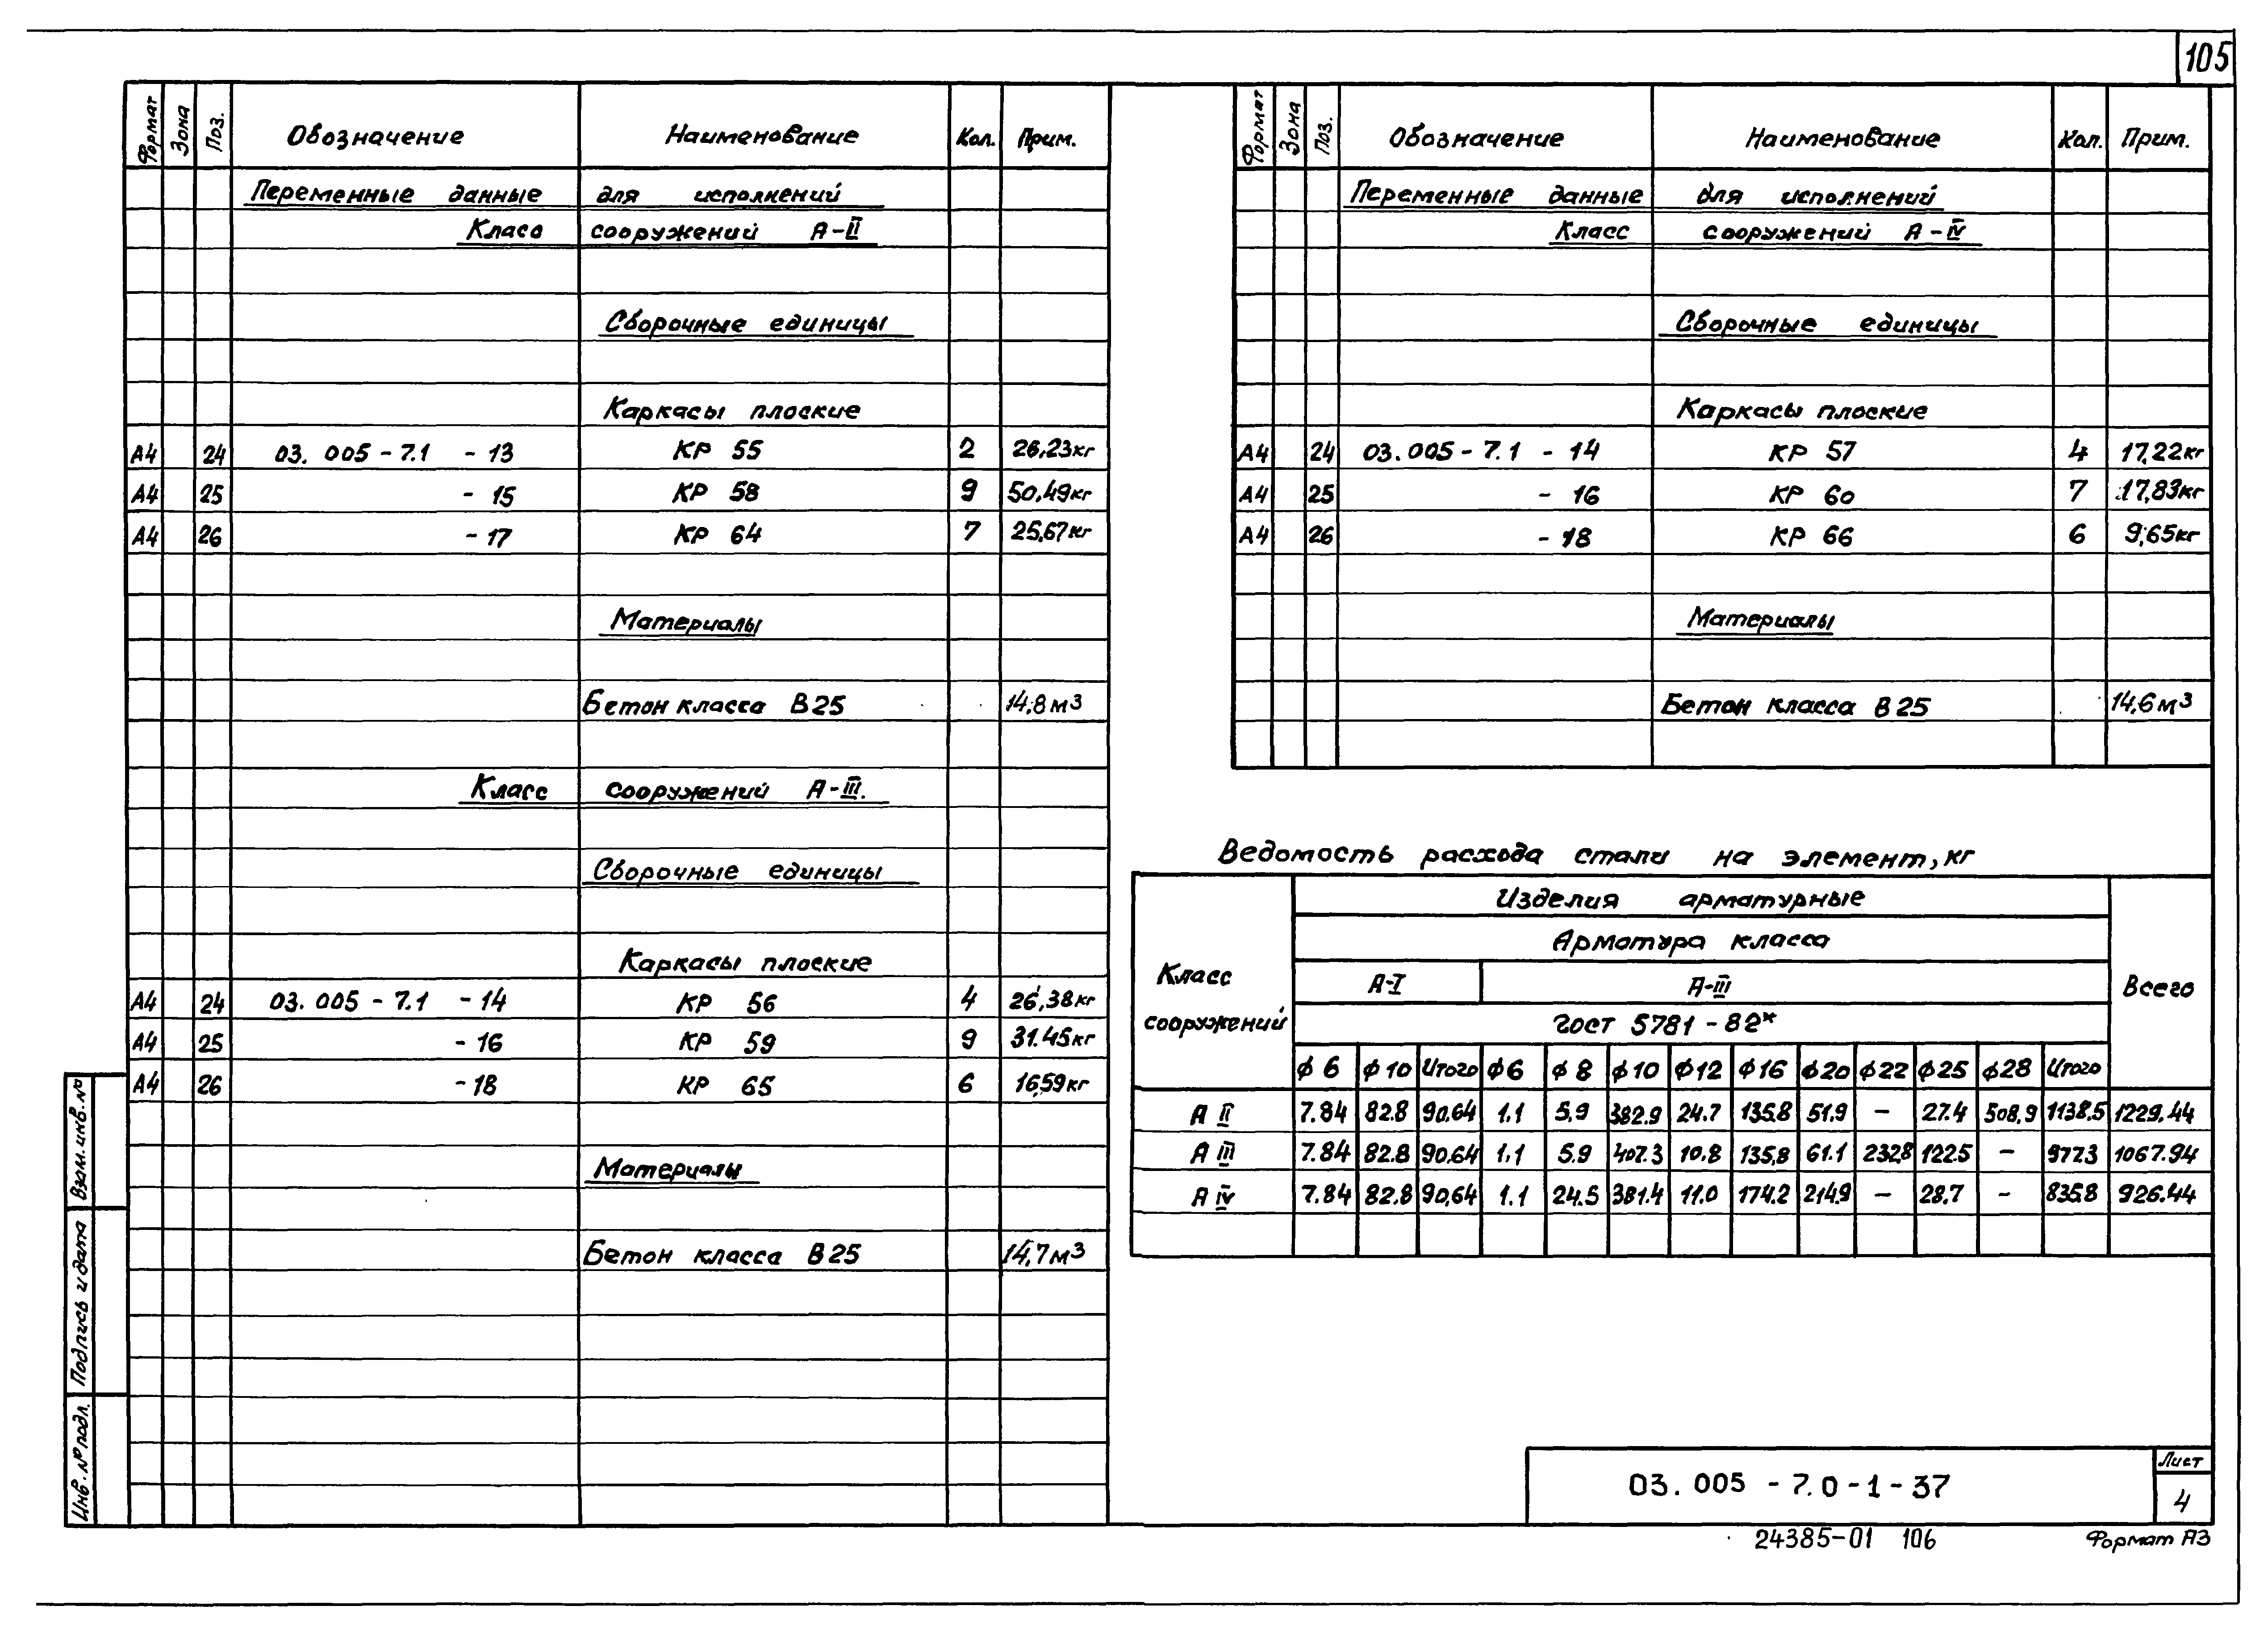 105
Формат Зона Поз. Обозначение Наименование Кол. Прим.
Переменные данные для исполнений
Класс сооружений А-II
Сборочные единицы
Каркасы плоские
А4 24 03. 005 - 7.1 - 13 КР 55 2 26,23кг
А4 25 - 15 КР 58 9 50,49кг
А4 26 - 17 КР 64 7 25,67кг
Материалы
Бетон класса В25 14,8 м³
Класс сооружений А-III.
Сборочные единицы
Каркасы плоские
А4 24 03. 005 - 7.1 - 14 КР 56 4 26,38кг
А4 25 - 16 КР 59 9 31.45кг
А4 26 - 18 КР 65 6 16,59кг
Материалы
Бетон класса В25 14,7 м³
Формат Зона Поз. Обозначение Наименование Кол. Прим.
Переменные данные для исполнений
Класс сооружений А-IV
Сборочные единицы
Каркасы плоские
А4 24 03. 005 - 7.1 - 14 КР 57 4 17,22кг
А4 25 - 16 КР 60 7 17,83кг
А4 26 - 18 КР 66 6 9,65кг
Материалы
Бетон класса В25 14,6 м³
Ведомость расхода стали на элемент, кг
Класс сооружений Изделия арматурные Всего
Арматура класса
А-I А-III
Гост 5781 - 82*
ϕ 6 ϕ 10 Итого ϕ 6 ϕ 8 ϕ 10 ϕ12 ϕ16 ϕ20 ϕ22 ϕ25 ϕ28 Итого
А II 7.84 82.8 90.64 1.1 5.9 382.9 24.7 135.8 51.9 – 27.4 508,9 1138.5 1229.44
А III 7.84 82.8 90.64 1.1 5.9 407.3 10.8 135,8 61.1 232,8 122.5 – 977.3 1067.94
А IV 7.84 82.8 90,64 1.1 24.5 381.4 11.0 174.2 214.9 – 28.7 – 835.8 926.44
Взам. инв. №
Подпись и дата
Инв. № подл.
03. 005 - 7. 0 - 1 - 37
Лист
4
24385-01 106
Формат А3